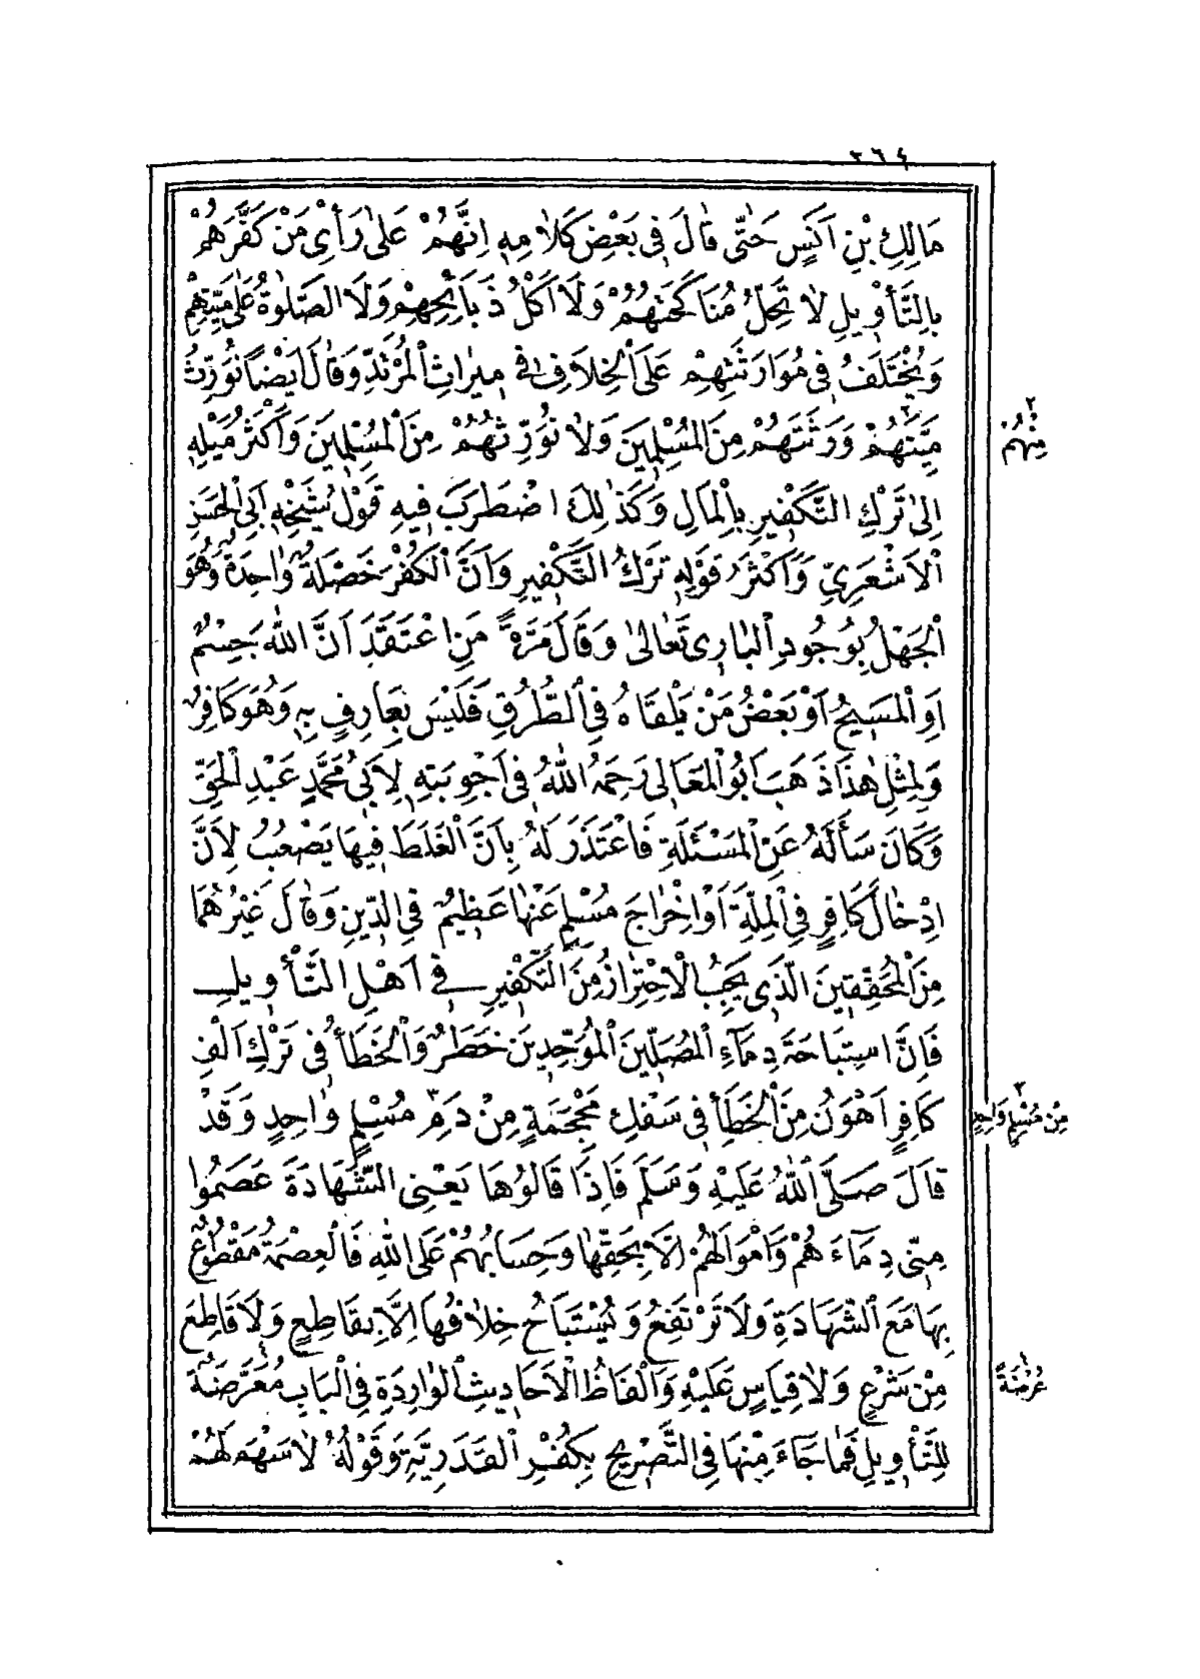 ٢٦٤
مَالِكِ بْنِ اَنَسٍ حَتّٰى قَالَ فِى بَعْضِ كَلَامِهِ اِنَّهُمْ عَلٰى رَأْىِ مَنْ كَفَّرَهُمْ
بِالتَّأْوِيلِ لَا تَحِلُّ مُنَاكَحَتُهُمْ وَلَا اَكْلُ ذَبَائِحِهِمْ وَلَا الصَّلٰوةُ عَلٰى مَيِّتِهِمْ
وَيُخْتَلَفُ فِى مُوَارَثَتِهِمْ عَلَى الْخِلَافِ فِى مِيرَاثِ الْمُرْتَدِّ وَقَالَ اَيْضًا نُوَرِّثُ
مَيِّتَهُمْ وَرَثَتَهُمْ مِنَ الْمُسْلِمِينَ وَلَا نُوَرِّثُهُمْ مِنَ الْمُسْلِمِينَ وَاَكْثَرُ مَيْلِهِ
٢
مِنْهُمْ
اِلٰى تَرْكِ التَّكْفِيرِ بِالْمَالِ وَكَذٰلِكَ اضْطَرَبَ فِيهِ قَوْلُ شَيْخِهِ اَبِى الْحَسَنِ
الْاَشْعَرِىِّ وَاَكْثَرُ قَوْلِهِ تَرْكُ التَّكْفِيرِ وَاَنَّ الْكُفْرَ خَصْلَةٌ وَاحِدَةٌ وَهُوَ
الْجَهْلُ بِوُجُودِ الْبَارِى تَعَالٰى وَقَالَ مَرَّةً مَنِ اعْتَقَدَ اَنَّ اللّٰهَ جِسْمٌ
اَوِ الْمَسِيحُ اَوْ بَعْضُ مَنْ يَلْقَاهُ فِى الطُّرُقِ فَلَيْسَ بِعَارِفٍ بِهِ وَهُوَ كَافِرٌ
وَلِمِثْلِ هٰذَا ذَهَبَ اَبُو الْمَعَالِى رَحِمَهُ اللّٰهُ فِى اَجْوِبَتِهِ لِاَبِى مُحَمَّدٍ عَبْدِ الْحَقِّ
وَكَانَ سَأَلَهُ عَنِ الْمَسْئَلَةِ فَاعْتَذَرَ لَهُ بِاَنَّ الْغَلَطَ فِيهَا يَصْعُبُ لِاَنَّ
اِدْخَالَ كَافِرٍ فِى الْمِلَّةِ اَوْ اِخْرَاجَ مُسْلِمٍ عَنْهَا عَظِيمٌ فِى الدِّينِ وَقَالَ غَيْرُهُمَا
مِنَ الْمُحَقِّقِينَ الَّذِى يَجِبُ الْاِحْتِرَازُ مِنَ التَّكْفِيرِ فِى اَهْلِ التَّأْوِيلِ
فَاِنَّ اسْتِبَاحَةَ دِمَاءِ الْمُصَلِّينَ الْمُوَحِّدِينَ خَطَرٌ وَالْخَطَأُ فِى تَرْكِ اَلْفِ
كَافِرٍ اَهْوَنُ مِنَ الْخَطَأِ فِى سَفْكِ مِحْجَمَةٍ مِنْ دَمِ مُسْلِمٍ وَاحِدٍ وَقَدْ
٣
مِنْ مُسْلِمٍ وَاحِدٍ
قَالَ صَلَّى اللّٰهُ عَلَيْهِ وَسَلَّمَ فَاِذَا قَالُوهَا يَعْنِى الشَّهَادَةَ عَصَمُوا
مِنِّى دِمَاءَهُمْ وَاَمْوَالَهُمْ اِلَّا بِحَقِّهَا وَحِسَابُهُمْ عَلَى اللّٰهِ فَالْعِصْمَةُ مَقْطُوعٌ
بِهَا مَعَ الشَّهَادَةِ وَلَا تَرْتَفِعُ وَيُسْتَبَاحُ خِلَافُهَا اِلَّا بِقَاطِعٍ وَلَا قَاطِعَ
مِنْ شَرْعٍ وَلَا قِيَاسٍ عَلَيْهِ وَاَلْفَاظُ الْاَحَادِيثِ الْوَارِدَةِ فِى الْبَابِ مُعَرَّضَةٌ
عُرْضَةٌ
لِلتَّأْوِيلِ فَمَا جَاءَ مِنْهَا فِى التَّصْرِيحِ بِكُفْرِ الْقَدَرِيَّةِ وَقَوْلُهُ لَا سَهْمَ لَهُمْ